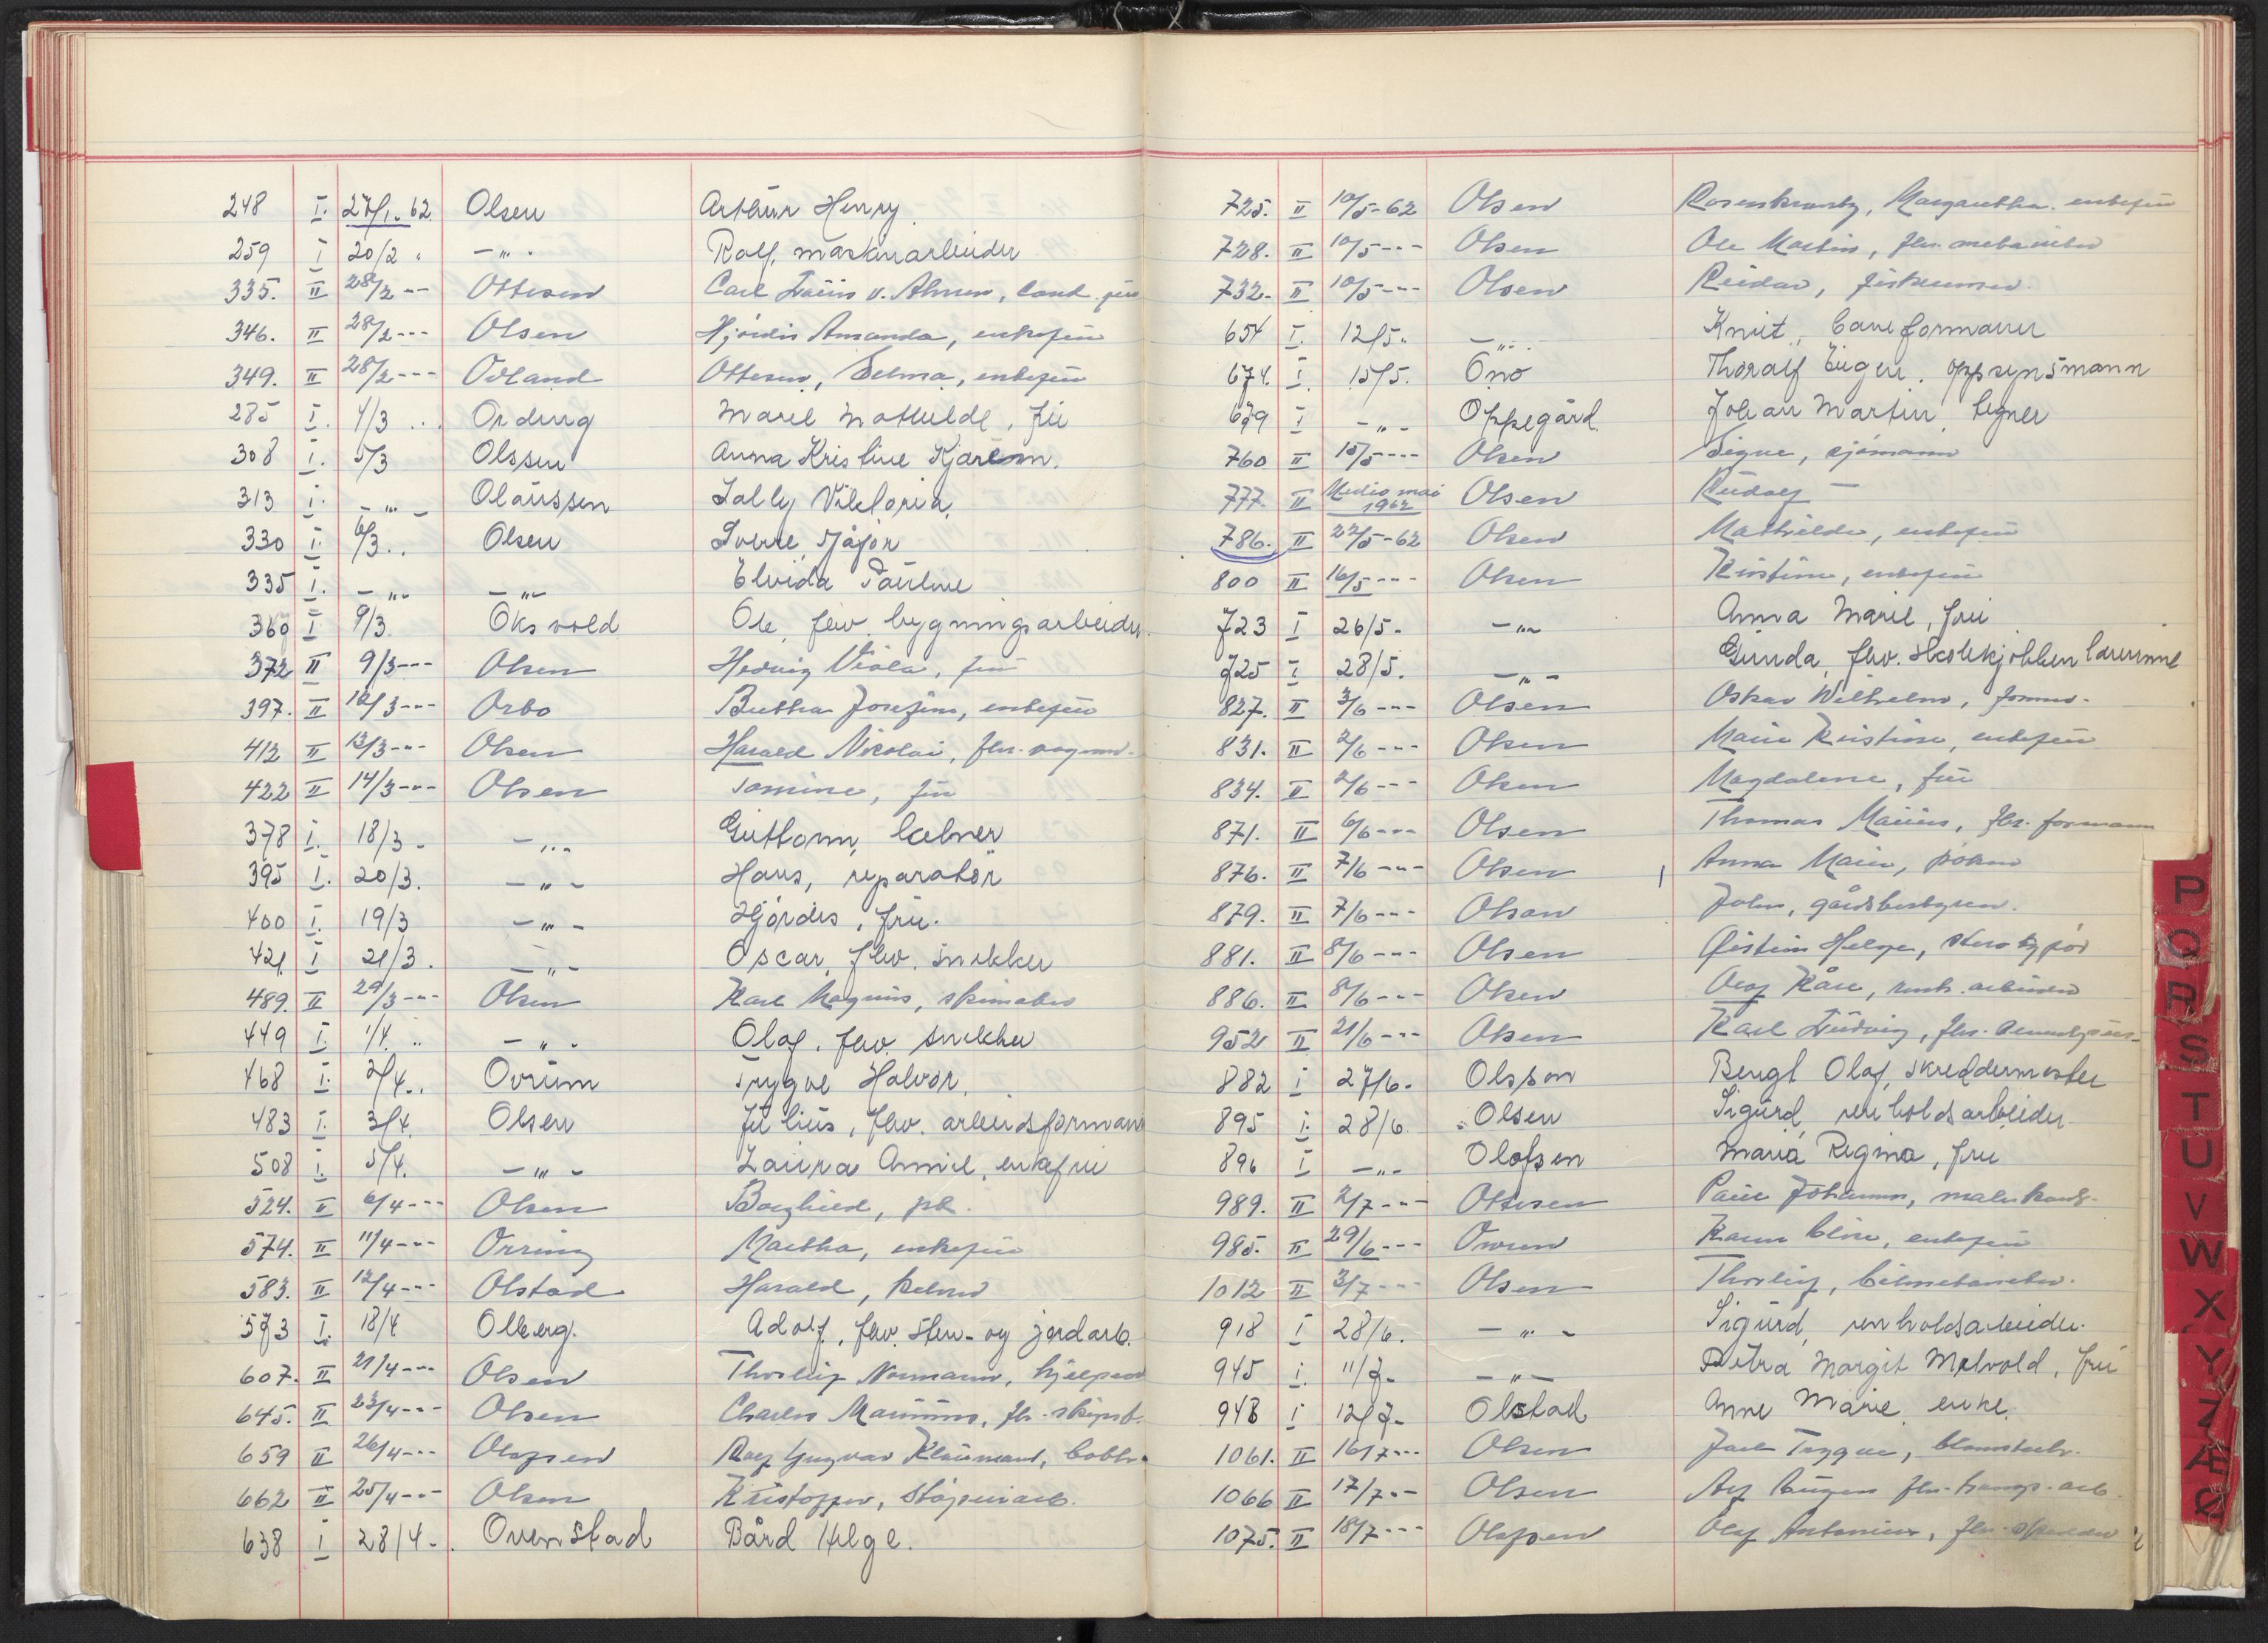 248 I. 27/1-62. Olsen Arthur Henry
259 I 20/2 " -"- Rolf, maskinarbeider
335. II 28/2 -"- Ottesen Carl Louis v. Ahnen, cand. jur
346. II 28/2 -"- Olsen Hjördis Amanda, enkefru
349. II 28/2 -"- Ovland Ottesen, Selma, enkefru
285 I. 1/3 Ording Marie Mathilde, fru
308 I. 5/3 Olssen Anna Kristine
313 I. -"- Olaussen Sally Viktoria
330 I. 6/3 Olsen Sverre, Major
335 I. -"- -"- Elvida Pauline
360 I 9/3 Oksvold Ole, fhv. bygningsarbeider.
372 II 9/3 -"- Olsen Hedvig Viola, fru
397. II 10/3 -"- Orbo Bertha Josefine, enkefru
412 II 13/3 -"- Olsen Harald Nicolai, fhv. vognm.
422 II 14/3 -"- Olsen Tomine, fru
378 I. 18/3 - -"- Guttorm, kelner
395 I. 20/3. -"- Hans, reparatör
400 I. 19/3 -"- Hjördis, fru.
421 I 21/3. -"- Oscar, fhv. snekker
489. II 29/3 -"- Olsen Karl Magnus, skomaker
449 I. 1/4. " -"- Olaf, fhv. snekker
468 I. 2/4. Ovrum Trygve Halvor
483 I. 3/4. Olsen Julius, fhv. arbeidsformann
508 I. 5/4. -"- Laura Amie, enkefru
524. II 6/4 -"- Olsen Borghild, frk.
574. II 11/4 -"- Orring Martha, enkefru
583. II 12/4 -"- Olstad Harald, kelner
573 I. 18/4 Olberg. Adolf, fhv. sten- og jordarb.
607. II 21/4 -"- Olsen Thorleif Normann, hjelpearb
645. II 23/4 -"- Olsen Charles Marinius, fhv. skipst.
659 II 26/4 -"- Olafsen Rolf Yngvar
662 II 25/4 -"- Olsen Kristoffer, støperiarb.
638 I 28/4 -. Ovenstad Bård Helge.
725. II 10/5-62 Olsen Rosenkrantz, Margaretha enkefru
728. II 10/5 -"- Olsen Ole Martin, fhv. mekaniker
732. II 10/5 -"- Olsen Reidar,
654 I. 12/5. -"- Knut, baneformann
674. I. 15/5. Ono Thoralf Eugen, oppsynsmann
679 I -"- Oppegård Johan Martin, tegner
760 II 15/5 -"- Olsen Signe, sjömann
777. II Medio mai 1962 Olsen Rudolf -
786. II 22/5-62 Olsen Mathilde, enkefru
800 II 16/5 -"- Olsen Kristine, enkefru
723 I 26/5 - -"- Anna Marie, fru
725 I 28/5. -"- Gunda, fhv. skolekjøkken lærerinne
827. II 3/6 -"- Olsen Oskar Wilhelm,
831. II 2/6 -"- Olsen Marie Kristine, enkefru
834. II 2/6 -"- Olsen Magdalene, fru
871. II 6/6 -"- Olsen Thomas Marius, fhv. formann
876. II 7/6 -"- Olsen Anna Marie,
879. II 7/6 -"- Olsen John, gårdsbestyrer.
881. II 8/6 -"- Olsen Øistein Helge, stereotypör
886. II 8/6 -"- Olsen Olaf Kåre, renh. arbeider
952 II 21/6 -"- Olsen Karl Ludvig, fhv.
882 I 27/6. Olsson Bengt Olaf, skreddermester
895 I. 28/6 Olsen Sigurd, renholdsarbeider
896 I -"- Olofsen Maria Regina, fru
989. II 2/7 -"- Ottesen Paul Johannes,
985. II 29/6 -"- Owren Karen Oline, enkefru
1012 II 3/7 -"- Olsen Thorleif, bilmekaniker.
918 I 28/6. -"- Sigurd, renholdsarbeider.
945 I. 11/7 - -"- Petra Margit Melvold, fru
948 I 12/7 - Olstad Anne Marie, enke.
1061. II 16/7 -"- Olsen Jarl Trygve,
1066 II 17/7 -"- Olsen Alf Eugen fhv. transp. arb.
1075. II 18/7 -"- Olafsen Olaf Antonius, fhv.
P
Q
R
S
T
U
V
W
X
Y
Z
Æ
Ø